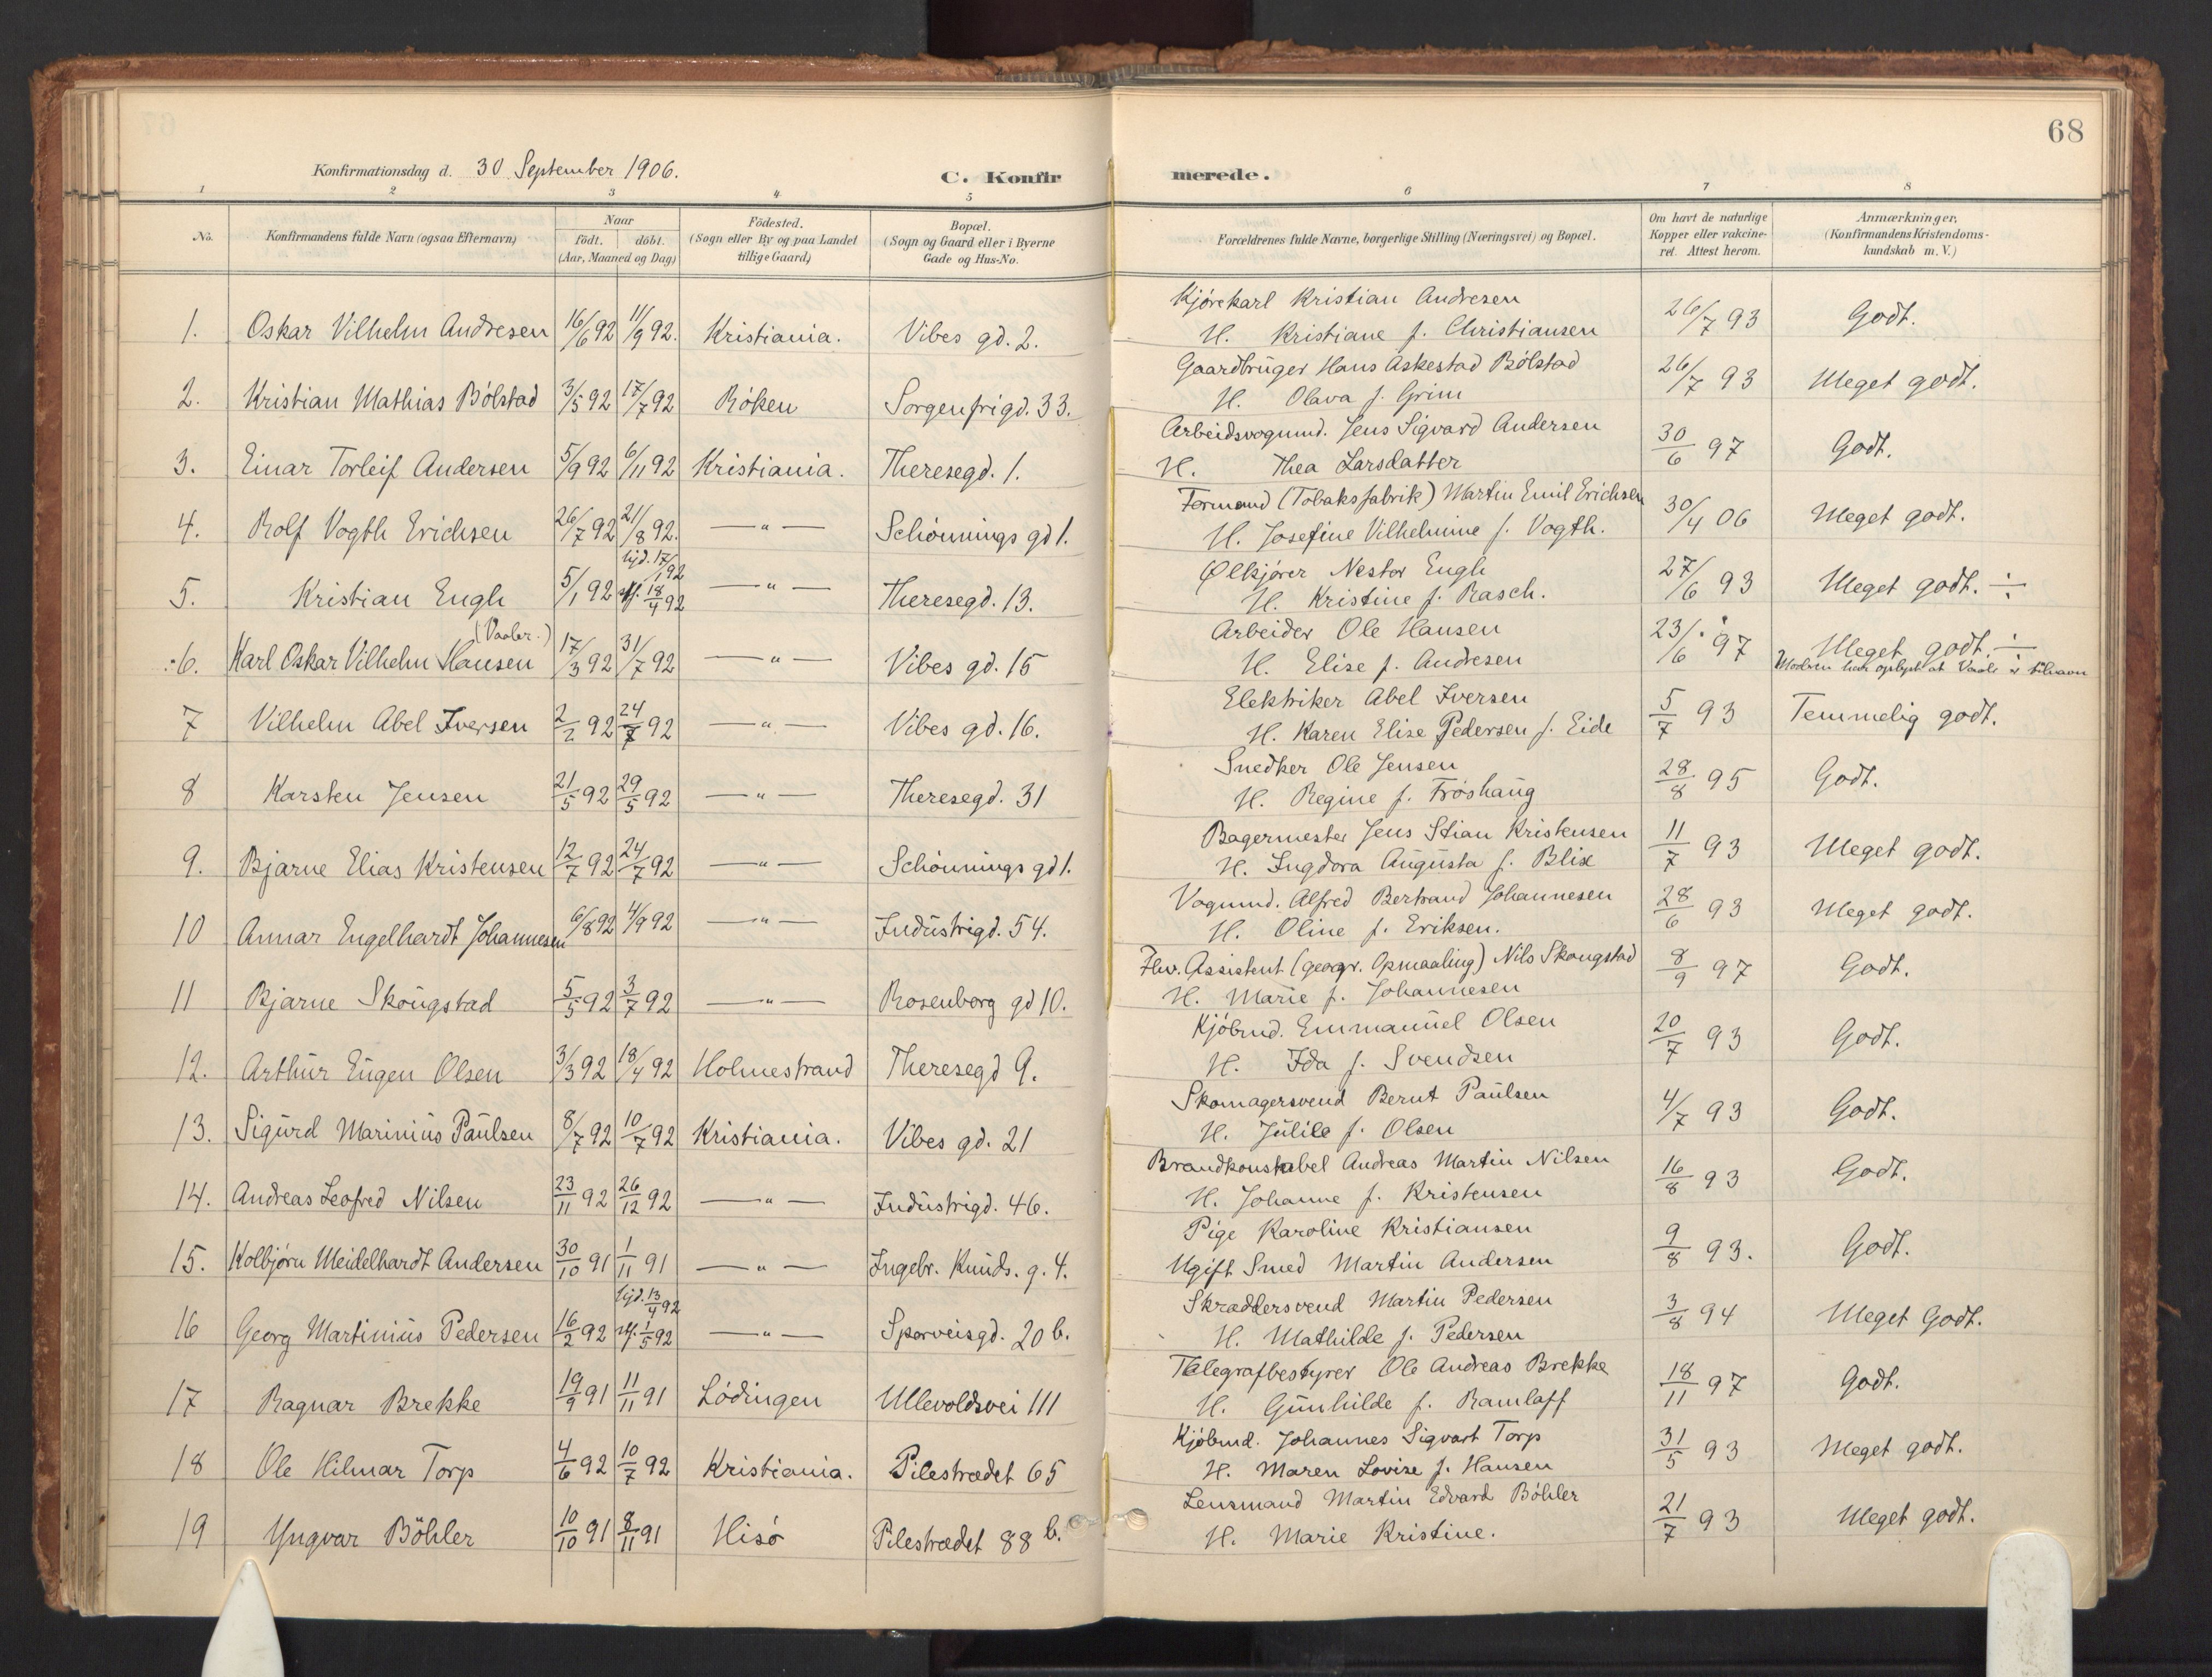 68
Konfirmationsdag d. 30 September 1906. C. Konfirmerede.
1 2 3 4 5 6 7 8
No. Konfirmandens fulde Navn (ogsaa Efternavn) Naar födt. döbt. (Aar, Maaned og Dag) Födested. (Sogn eller By og paa Landet tillige Gaard) Bopæl. (Sogn og Gaard eller i Byerne Gade og Hus-No. Forældrenes fulde Navne, borgerlige Stilling (Næringsvei) og Bopæl. Om havt de naturlige Kopper eller vakcineret. Attest herom. Anmærkninger, (Konfirmandens Kristendomskundskab m. V.)
1. Oskar Vilhelm Andresen 16/6 92 11/9 92. Kristiania. Vibes gd. 2. Kjörekarl Kristian Andresen 26/7 93 Godt.
H. Kristiane f. Christiansen
2. Kristian Mathias Bölstad 3/5 92 17/7 92 Röken Sorgenfrigd. 33. Gaardbruger Hans Askestad Bölstad 26/7 93 Meget godt.
H. Olava f. Grim
3. Einar Torleif Andersen 5/9 92 6/11 92 Kristiania. Theresegd. 1. Arbeidsvognmd. Jens Sigvard Andersen 30/6 97 Godt.
H. Thea Larsdatter
4. Rolf Vogth Erichsen 26/7 92 21/8 92. —"— Schönnings gd 1. Formand (Tobaksfabrik) Martin Emil Erichsen 30/4 06 Meget godt.
H. Josefine Vilhelmine f. Vogth.
5. Kristian Engh 5/1 92 hjd. 17/1 92 18/4 92 —"— Theresegd. 13. Ølkjörer Nestor Engh 27/6 93 Meget godt. ÷
H. Kristine f. Rasch.
6. Karl Oskar Vilhelm Hansen (Vaaler.) 17/3 92 31/7 92 —"— Vibes gd. 15 Arbeider Ole Hansen 23/6 97 Meget godt. ÷
H. Elise f. Andresen Moderen har oplyst at Vaale er tilnavn
7 Vilhelm Abel Iversen 2/2 92 24/7 92 —"— Vibes gd. 16. Elektriker Abel Iversen 5/7 93 Temmelig godt.
H. Karen Elise Pedersen f. Eide
8 Karsten Jensen 21/5 92 29/5 92 —"— Theresegd. 31 Snedker Ole Jensen 28/8 95 Godt.
H. Regine f. Fröshaug
9. Bjarne Elias Kristensen 12/7 92 24/7 92 —"— Schönnings gd 1. Bagermester Jens Stian Kristensen 11/7 93 Meget godt.
H. Ingdora Augusta f. Blix
10 Annar Engelhardt Johannesen 6/8 92 4/9 92 —"— Industrigd. 54. Vognmd. Alfred Bertrand Johannesen 28/6 93 Meget godt.
H. Oline f. Eriksen.
11 Bjarne Skougstad 5/5 92 3/7 92 —"— Rosenborg gd 10. Fhv. Assistent (geogr. Opmaaling) Nils Skougstad 8/9 97 Godt.
H. Marie f. Johannesen
12. Arthur Eugen Olsen 3/3 92 18/4 92 Holmestrand Theresegd 9. Kjöbmd. Emmanuel Olsen 20/7 93 Godt.
H. Ida f. Svendsen
13. Sigurd Marinius Paulsen 8/7 92 10/7 92 Kristiania. Vibes gd. 21 Skomagersvend Bernt Paulsen 4/7 93 Godt.
H. Julile f. Olsen
14. Andreas Leofred Nilsen 23/11 92 26/12 92 —"— Industrigd. 46. Brandkonstabel Andreas Martin Nilsen 16/8 93 Godt.
H. Johanne f. Kristensen
15. Kolbjörn Meidelhardt Andersen 30/10 91 1/11 91 —"— Ingebr. Knuds. g. 4. Pige Karoline Kristiansen 9/8 93. Godt.
Ugift Smed Martin Andersen
16 Georg Martinius Pedersen 16/2 92 hjd. 13/4 92 1/5 92 —"— Sporveisgd. 20 b. Skræddersvend Martin Pedersen 3/8 94 Meget Godt.
H. Mathilde f. Pedersen
17 Ragnar Brekke 19/9 91 11/11 91 Lödingen Ullevoldsvei 111 Telegrafbestyrer Ole Andreas Brekke 18/11 97 Godt.
H. Gunhilde f. Ramlaff
18 Ole Hilmar Torp 4/6 92 10/7 92 Kristiania. Pilestrædet 65 Kjöbmd. Johannes Sigvart Torp 31/5 93 Meget godt.
H. Maren Lovise f. Hansen
19 Yngvar Böhler 10/10 91 8/11 91 Hisö Pilestrædet 88 b. Lensmand Martin Edvard Böhler 21/7 93 Meget godt.
H. Marie Kristine.